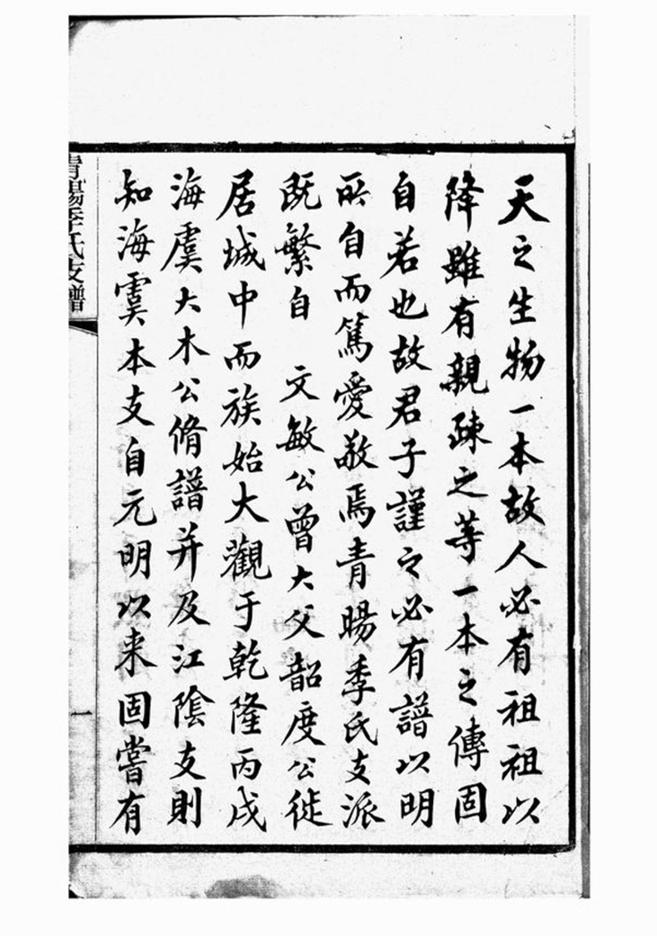 天之生物一本故人必有祖祖以
降雖有親疎之等一本之傳固
自若也故君子謹之必有譜以明
所自而篤愛敬焉青暘季氏支派
既繁自 文敏公曾大父韶度公徙
居城中而族始大觀于乾隆丙戌
海虞大木公脩譜并及江陰支則
知海虞本支自元明以来固嘗有
青暘季氏支譜
一